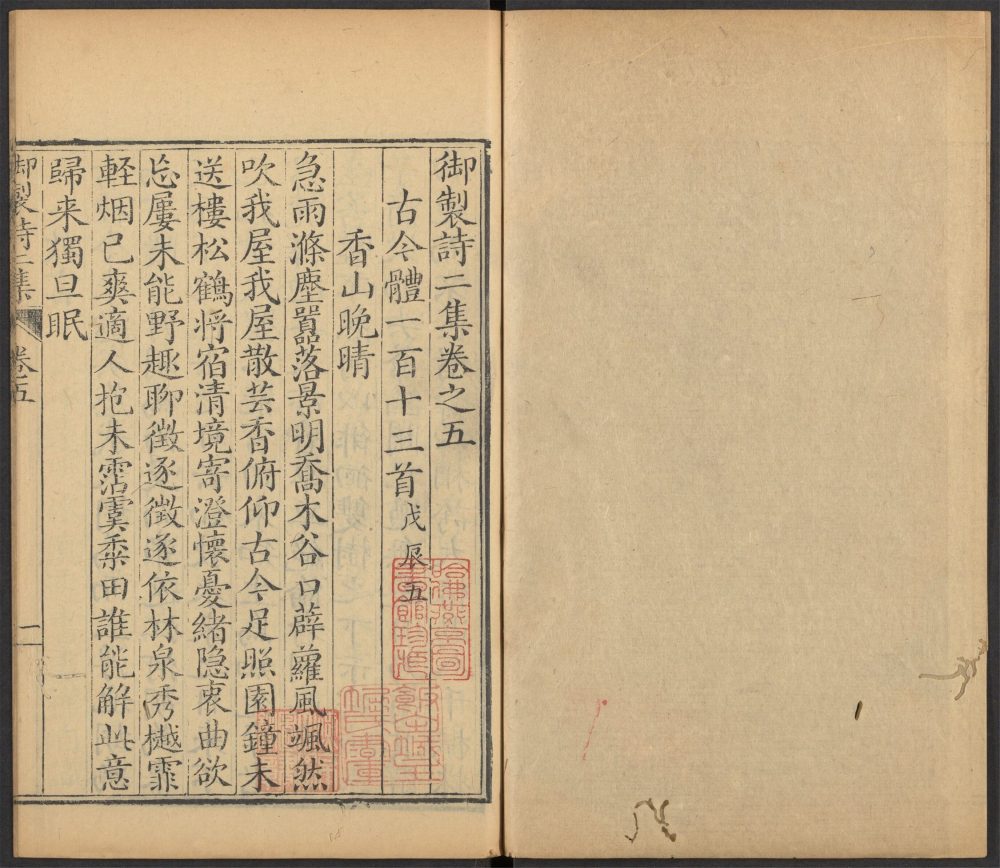 御製詩二集卷之五
古今體一百十三首戊辰五
香山晚晴
急雨滌塵囂落景明喬木谷口薜蘿風颯然
吹我屋我屋散芸香俯仰古今足照園鐘未
送棲松鶴將宿清境寄澄懷憂緒隐衷曲欲
忘屢未能野趣聊徵逐徵逐依林泉秀樾霏
軽烟已爽適人抱未霑㴻黍田誰能解此意
歸来獨旦眠
御製詩二集
卷五
一
哈佛燕京圖書館珍藏